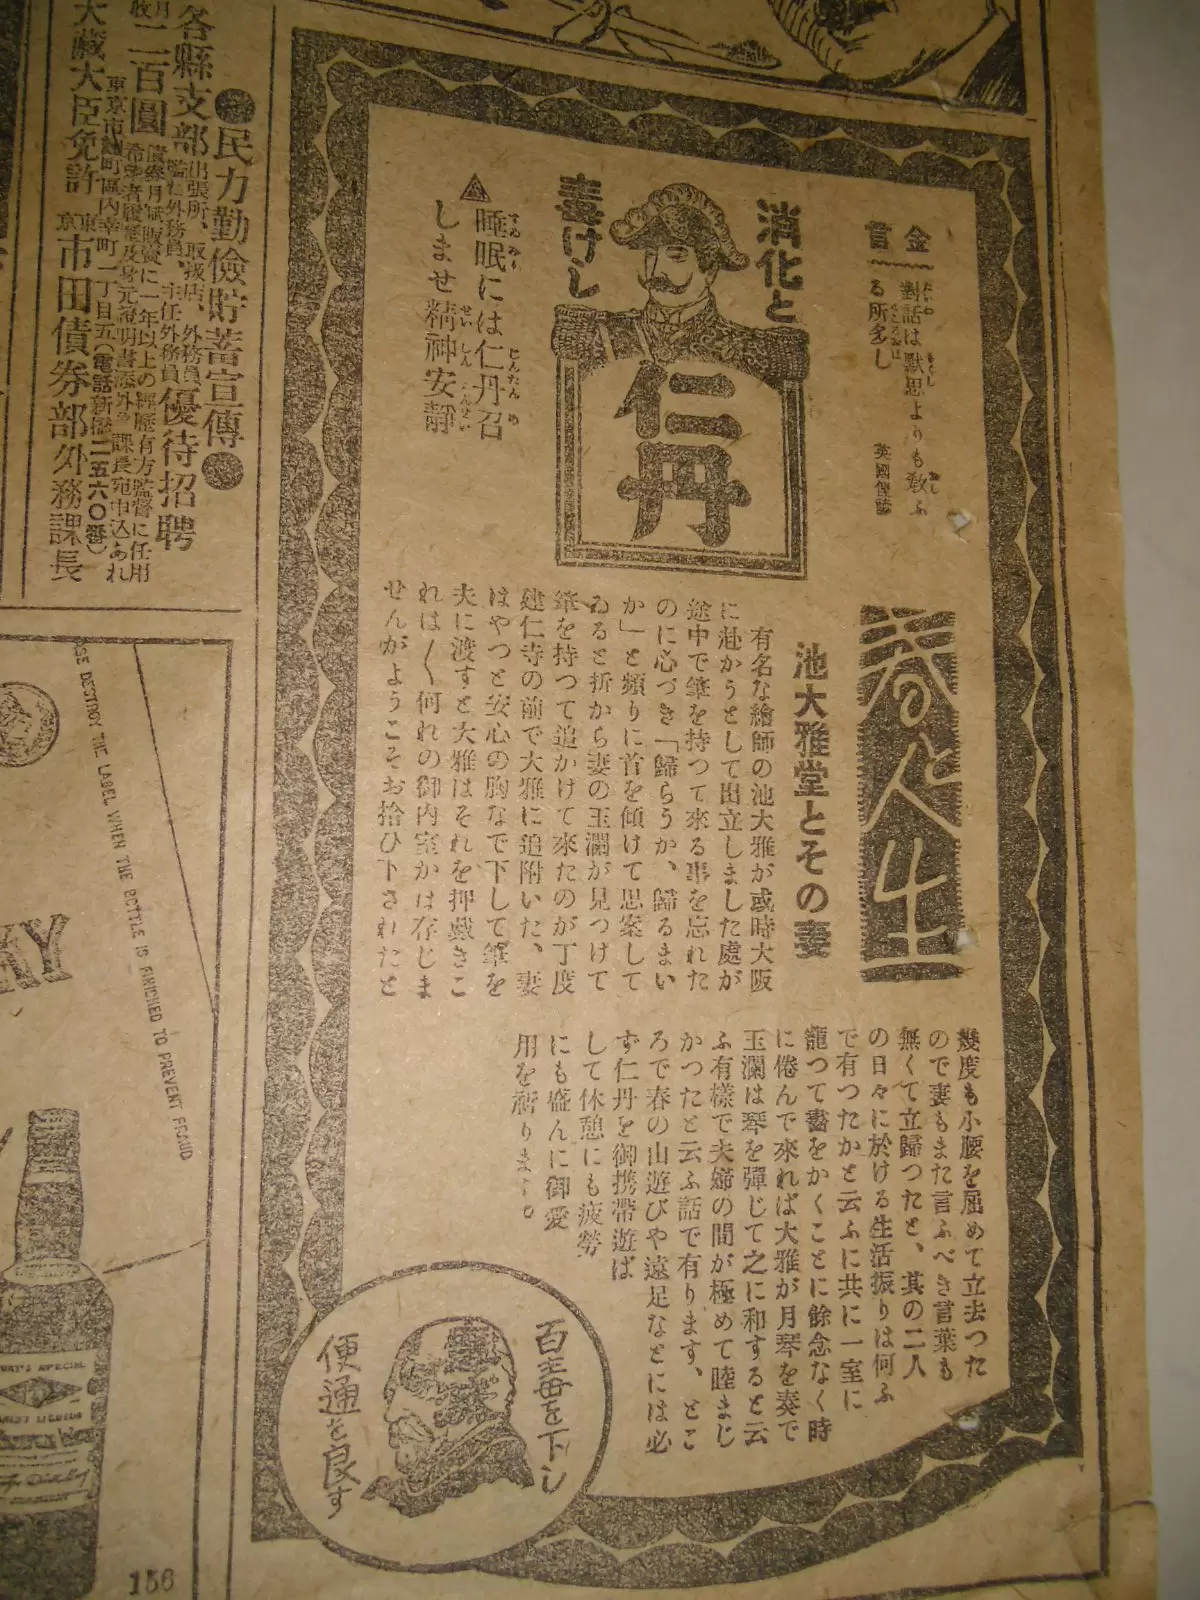 金言
對話は默思よりも教ふ
る所多し
英國俚諺
消化と
毒けし
仁丹
睡眠には仁丹召
しませ精神安靜
春と人生
池大雅堂とその妻
有名な繪師の池大雅が或時大阪
に赴かうとして出立しました處が
途中で筆を持つて來る事を忘れた
のに心づき「歸らうか、歸るまい
か」と頻りに首を傾けて思案して
ゐると折から妻の玉瀾が見つけて
筆を持つて追かけて來たのが丁度
建仁寺の前で大雅に追附いた、妻
はやつと安心の胸なで下して筆を
夫に渡すと大雅はそれを押戴きこ
れは〱何れの御内室かは存じま
せんがようこそお拾ひ下されたと
幾度も小腰を屈めて立去つた
ので妻もまた言ふべき言葉も
無くて立歸つたと、其の二人
の日々に於ける生活振りは何ふ
で有つたかと云ふに共に一室に
籠つて畵をかくことに餘念なく時
に倦んで來れば大雅が月琴を奏で
玉瀾は琴を彈じて之に和すると云
ふ有樣で夫婦の間が極めて睦まじ
かつたと云ふ話で有ります、とこ
ろで春の山遊びや遠足などには必
ず仁丹を御携帶遊ば
して休憩にも疲勞
にも盛んに御愛
用を祈ります。
百毒を下し
便通を良す
●民力勤儉貯蓄宣傳●
各縣支部
出張所、取扱店、外務員
監に外務員、主任外務員
優待招聘
月收二百圓
債券月賦販賣に一年以上の經歷有方監督に任用
希望者履歷及身元證明書添外務課長宛申込あれ
東京市麴町區内幸町一丁目五(電話新橋二五六〇番)
大藏大臣免許
東京市田債券部外務課長
DESTROY THE LABEL WHEN THE BOTTLE IS FINICHED TO PREVENT FRAUD
SPECIAL
156